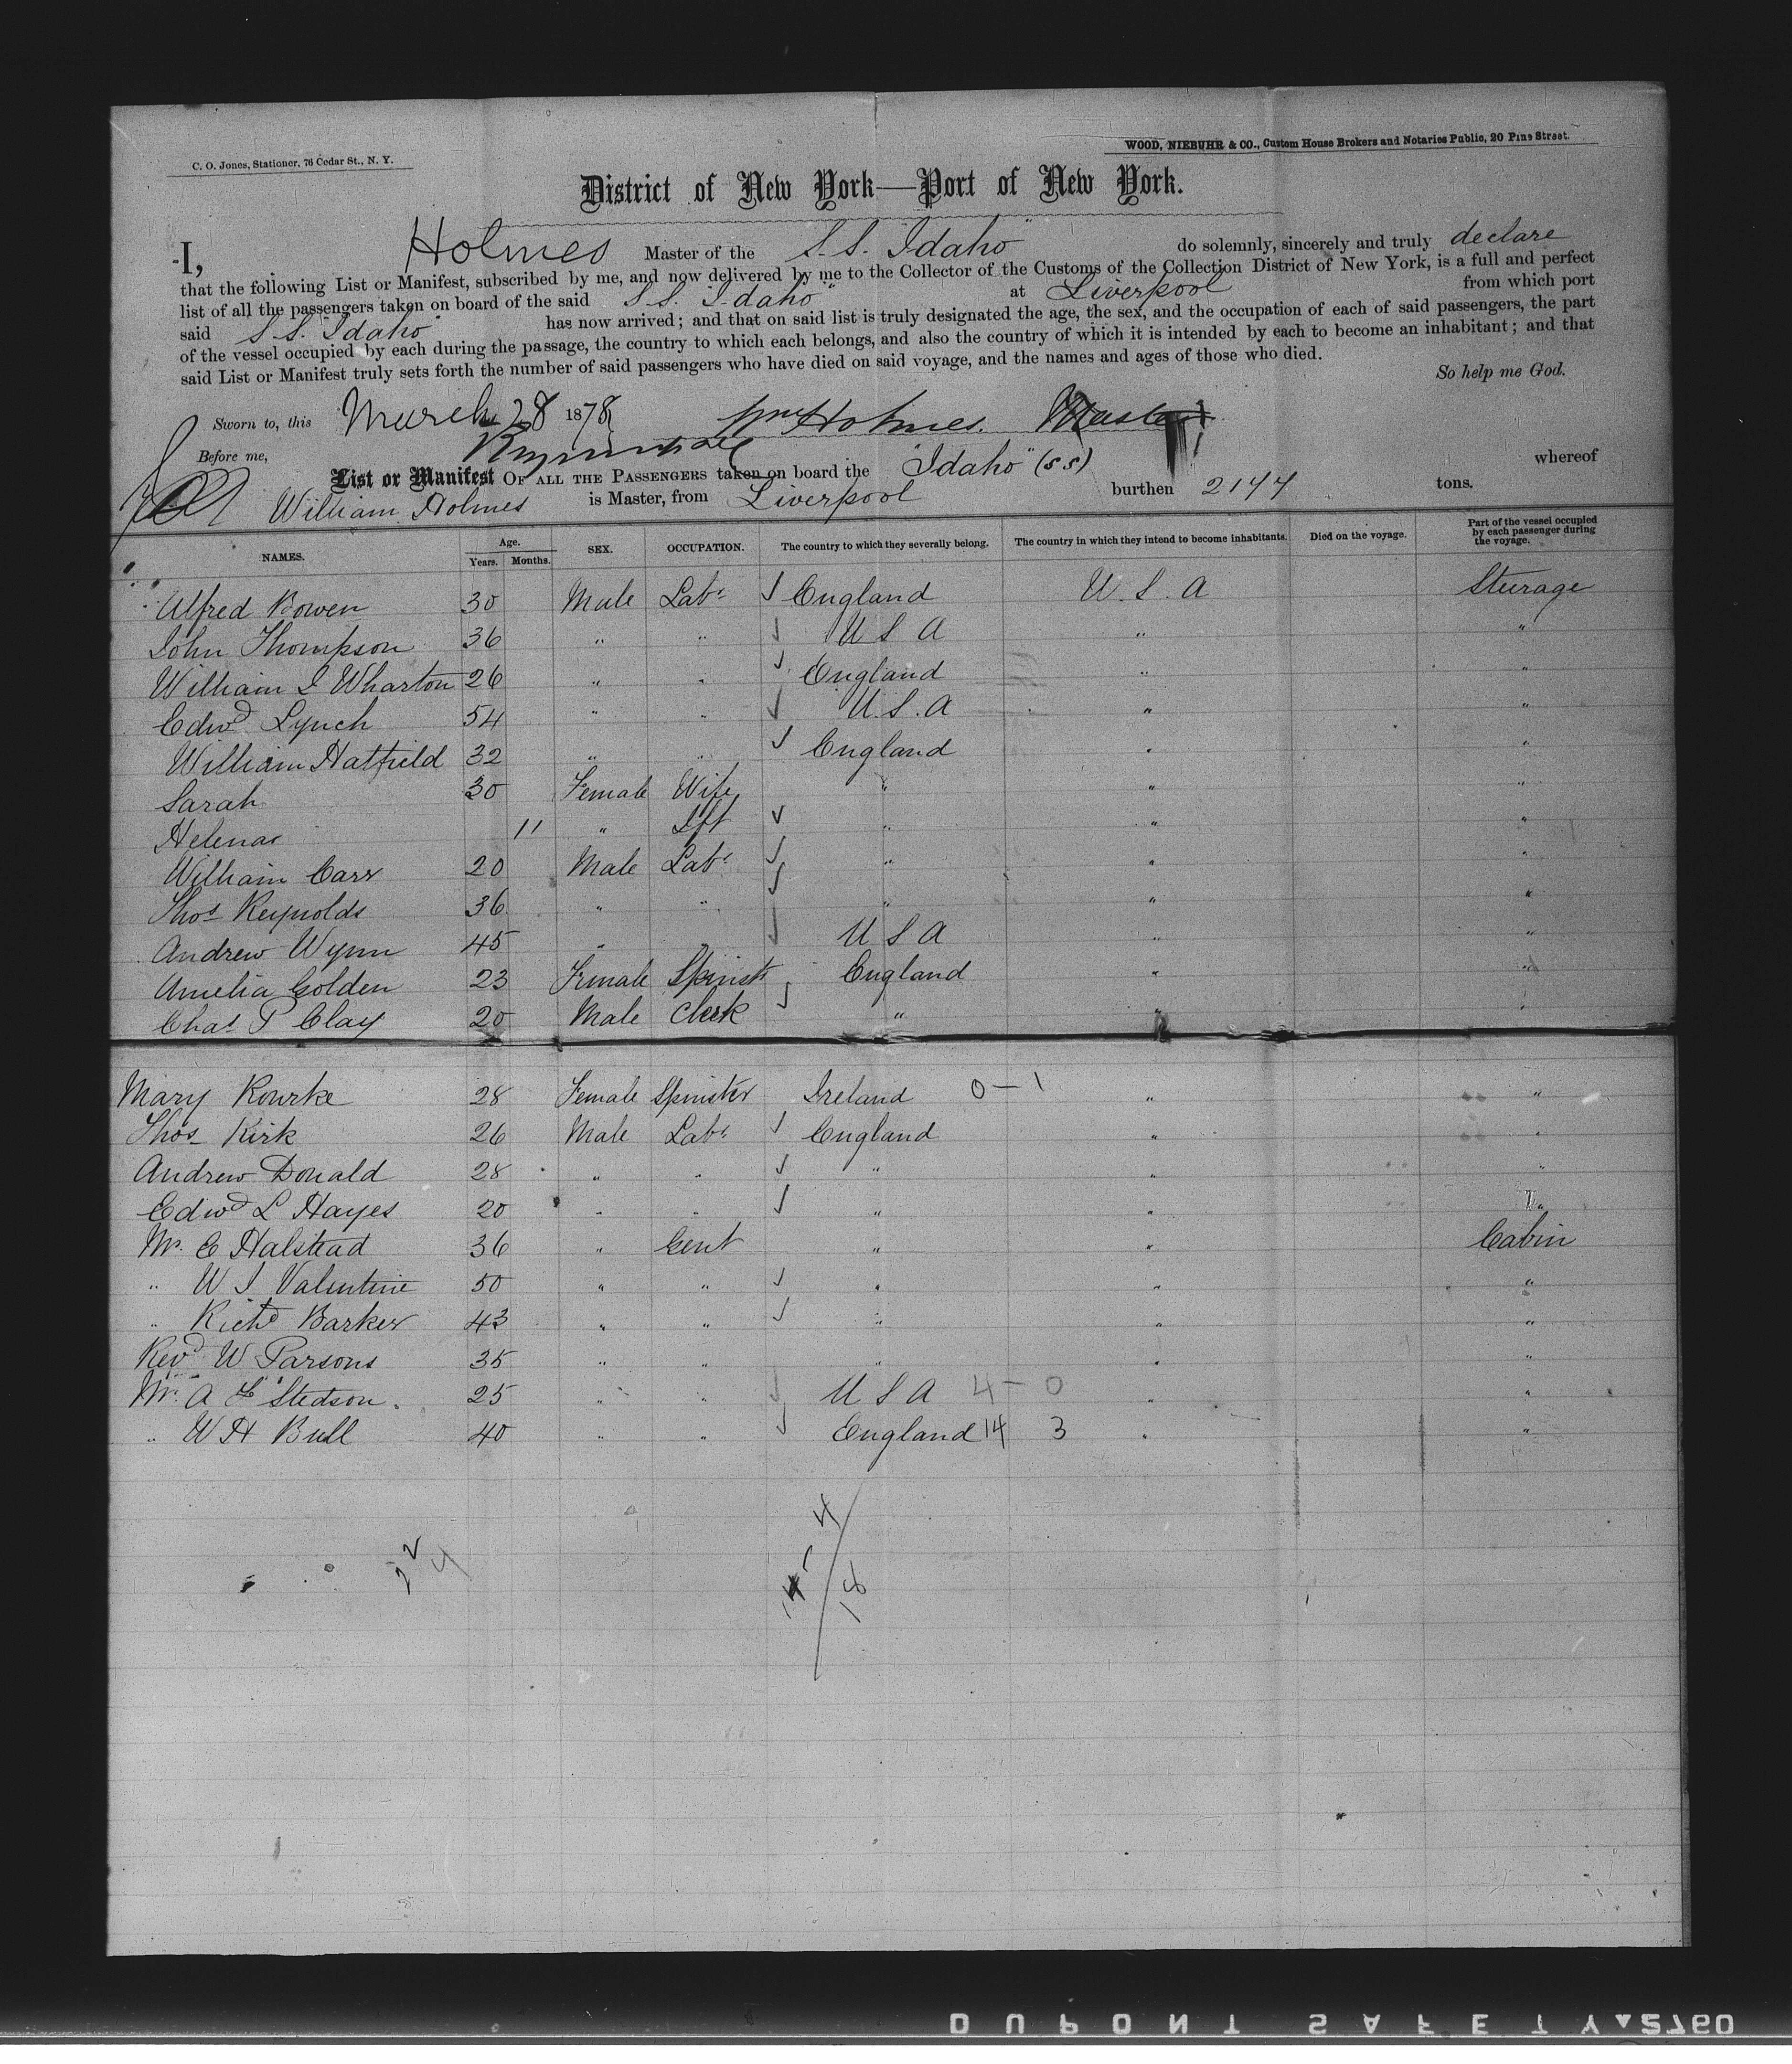 C. O. Jones, Stationer, 76 Cedar St., N. Y.
WOOD, NIEBUHR & CO., Custom House Brokers and Notaries Public, 20 Pine Street.
District of New York—Port of New York.
I, Holmes Master of the S.S. "Idaho" do solemnly, sincerely and truly declare
that the following List or Manifest, subscribed by me, and now delivered by me to the Collector of the Customs of the Collection District of New York, is a full and perfect
list of all the passengers taken on board of the said S.S. "Idaho" at Liverpool from which port
said S.S. "Idaho" has now arrived; and that on said list is truly designated the age, the sex, and the occupation of each of said passengers, the part
of the vessel occupied by each during the passage, the country to which each belongs, and also the country of which it is intended by each to become an inhabitant; and that
said List or Manifest truly sets forth the number of said passengers who have died on said voyage, and the names and ages of those who died.
So help me God.
Sworn to, this March 28 1878 Wm Holmes. Master
Before me,
List or Manifest OF ALL THE PASSENGERS taken on board the "Idaho" (SS) whereof
William Holmes is Master, from Liverpool burthen 2144 tons.
NAMES. Age. Years. Months. SEX. OCCUPATION. The country to which they severally belong. The country in which they intend to become inhabitants. Died on the voyage. Part of the vessel occupied by each passenger during the voyage.
Alfred Bowen 30 Male Labr England U.S.A Steerage
John Thompson 36 " " U S A " "
William I Wharton 26 " " England " "
Edwd Lynch 54 " " U.S.A " "
William Hatfield 32 " " England " "
Sarah 30 Female Wife " " "
Helena 11 " Ift " " "
William Carr 20 Male Labr " " "
Thos Reynolds 36 " " " " "
Andrew Wynn 45 " " U S A " "
Amelia Golden 23 Female Spinstr England " "
Chas P Clay 20 Male Clerk " " "
Mary Rourke 28 Female Spinster Ireland 0 — 1 " "
Thos Kirk 26 Male Labr England " "
Andrew Donald 28 " " " " "
Edwd L Hayes 20 " " " " "
Mr. E Halstead 36 " Gent " " Cabin
" W I Valentine 50 " " " " "
" Richd Barker 43 " " " " "
Revd W Parsons 35 " " " " "
Mr. A F Stedson. 25 " " U S A 4 — 0 " "
" W H Bull 40 " " England 14 3 " "
4
18
DUPONT SAFETY 2760